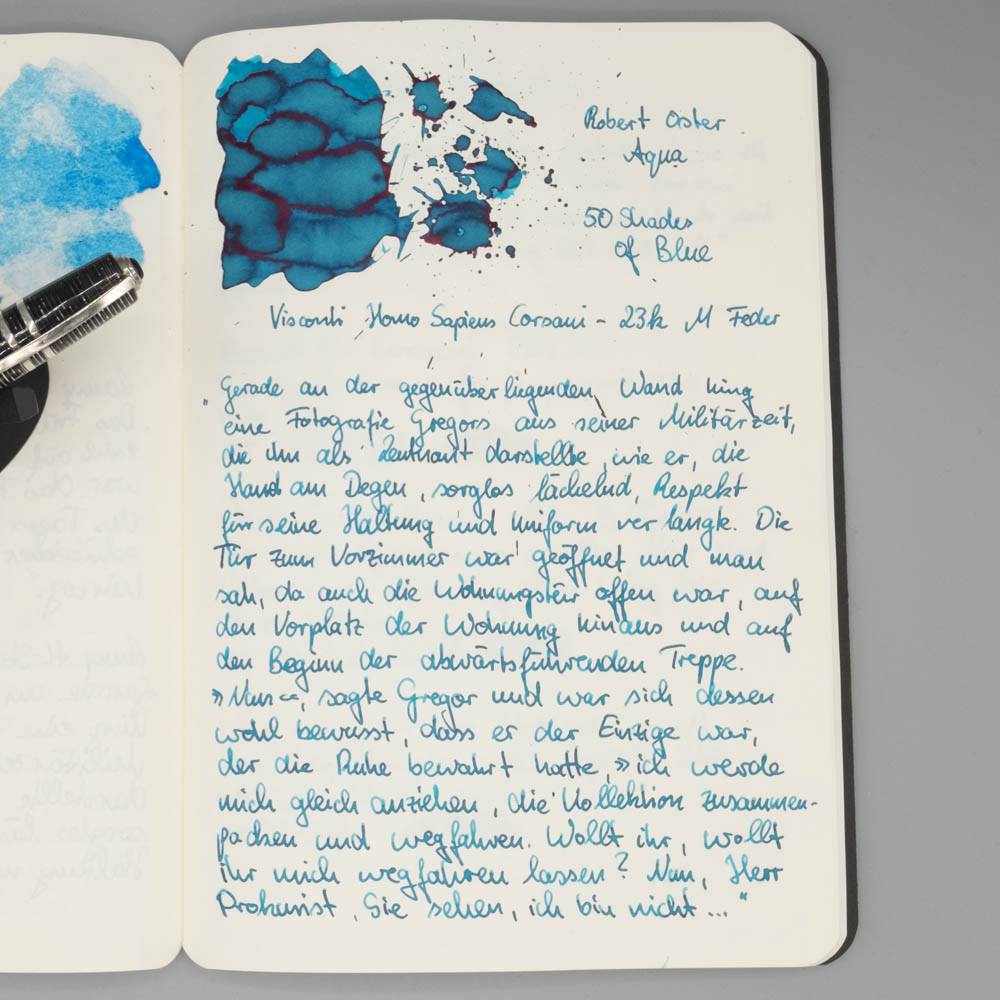 Robert Oster
Aqua
50 Shades
of Blue
Visconti Homo Sapiens Corsani - 23k M Feder
„Gerade an der gegenüberliegenden Wand hing
eine Fotografie Gregors aus seiner Militärzeit,
die ihn als Leutnant darstellte, wie er, die
Hand am Degen, sorglos lächelnd, Respekt
für seine Haltung und Uniform verlangte. Die
Tür zum Vorzimmer war geöffnet und man
sah, da auch die Wohnungstür offen war, auf
den Vorplatz der Wohnung hinaus und auf
den Beginn der abwärtsführenden Treppe.
»Nun«, sagte Gregor und war sich dessen
wohl bewusst, dass er der Einzige war,
der die Ruhe bewahrt hatte, »ich werde
mich gleich anziehen, die Kollektion zusammen-
packen und wegfahren. Wollt ihr, wollt
ihr mich wegfahren lassen? Nun, Herr
Prokurist, Sie sehen, ich bin nicht ..."